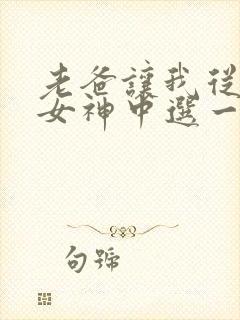 老爸讓我從
女神中選一
句號